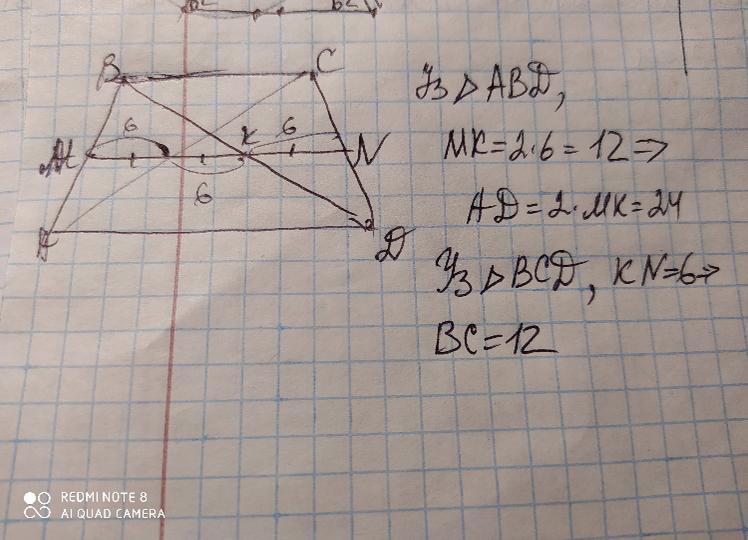 B C
6 K 6
M N
6
A D
Уз ▷ ABD,
MK=2·6=12⇒
AD=2·MK=24
Уз ▷ BCD, KN=6⇒
BC=12
REDMI NOTE 8
AI QUAD CAMERA